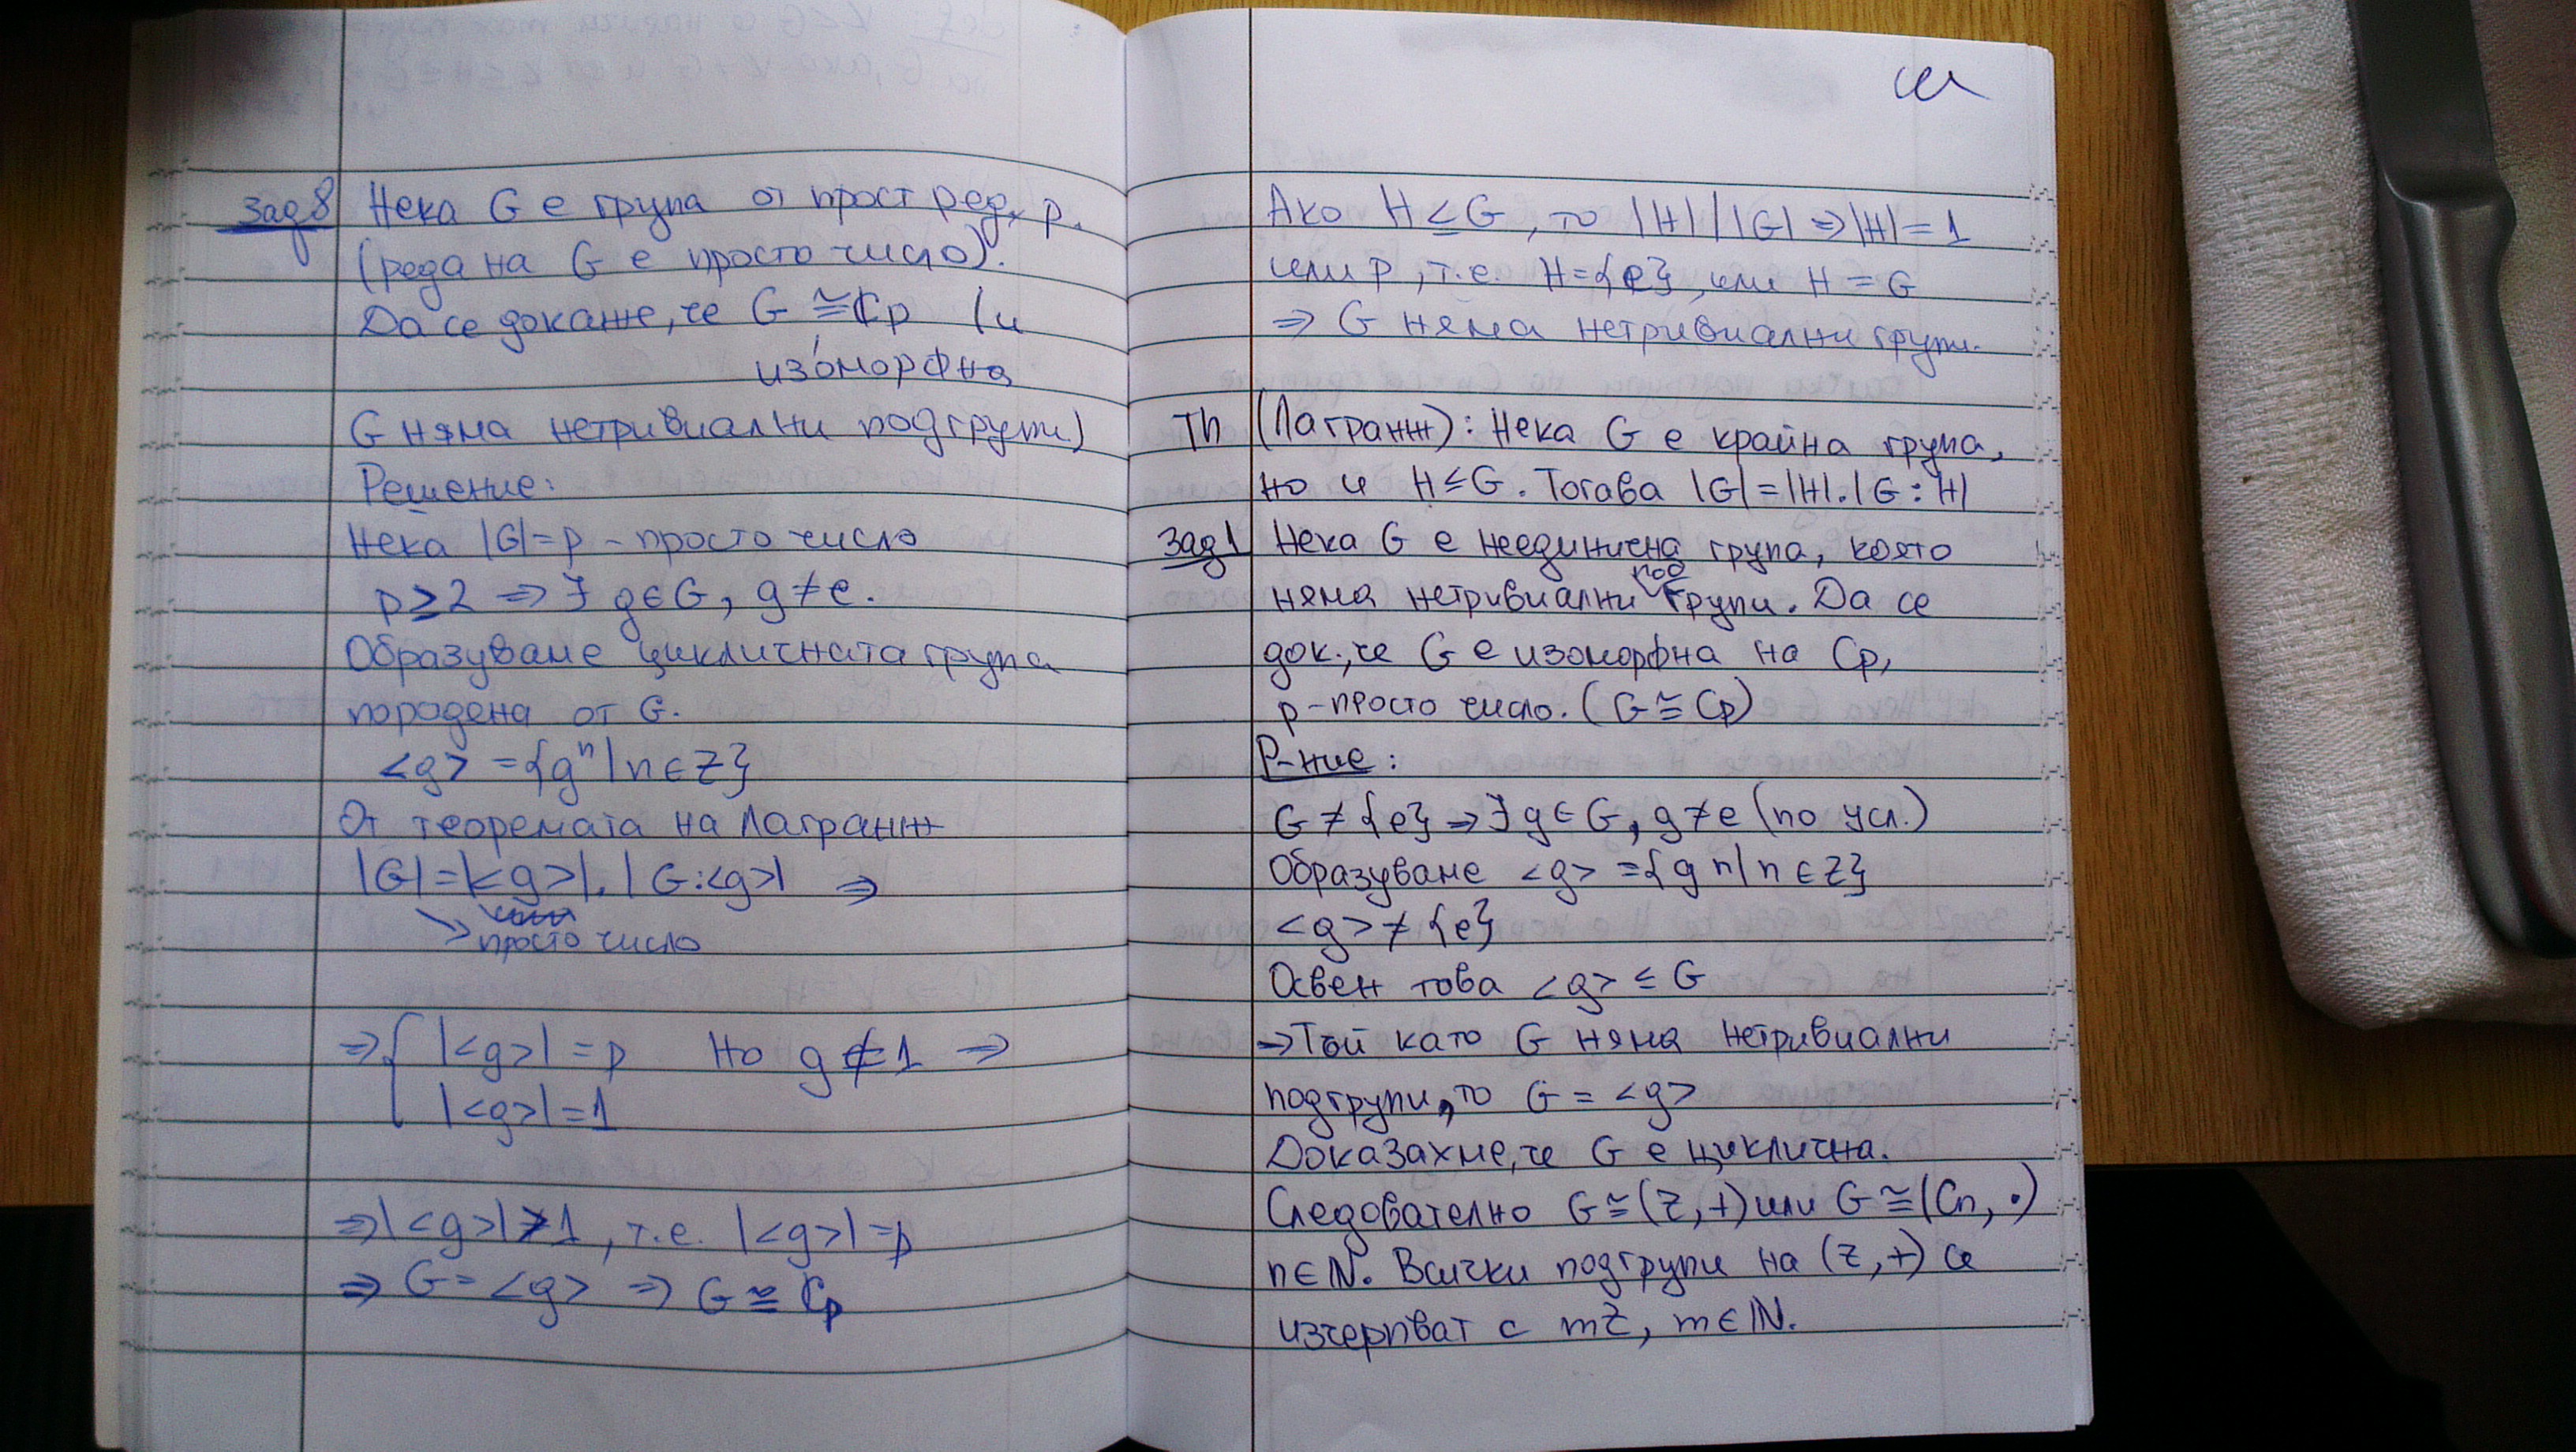 зад 8 Нека G е група от прост ред, p.
(реда на G е просто число).
Да се докаже, че G ≅ Cp (и
изоморфна
G няма нетривиални подгрупи)
Решение:
Нека |G|=p - просто число
p≥2 ⇒ ∃ g∈G, g≠e.
Образуваме цикличната група
породена от G.
<g> = {gⁿ | n∈Z}
От теоремата на Лагранж
|G|=|<g>|.|G:<g>| ⇒
просто число
⇒ { |<g>| = p Но g ≠ 1 ⇒
|<g>|=1
⇒|<g>|>1, т.е. |<g>|=p
⇒ G = <g> ⇒ G ≅ Cp
Ако H ≤ G, то |H| / |G| ⇒ |H| = 1
или p, т.е. H={e}, или H = G
⇒ G няма нетривиални групи.
Th (Лагранж): Нека G е крайна група,
но и H≤G. Тогава |G|=|H|.|G:H|
Зад1 Нека G е неединична група, която
няма нетривиални подгрупи. Да се
док., че G е изоморфна на Cp,
p - просто число. (G ≅ Cp)
Р-ние:
G ≠ {e} ⇒ ∃ g∈G, g≠e (по усл.)
Образуваме <g> = {g n | n∈Z}
<g> ≠ {e}
Освен това <g> ≤ G
⇒ Тъй като G няма нетривиални
подгрупи, то G = <g>
Доказахме, че G е циклична.
Следователно G≅(Z,+) или G≅(Cn, •)
n∈N. Всички подгрупи на (Z,+) се
изчерпват с mZ, m∈N.